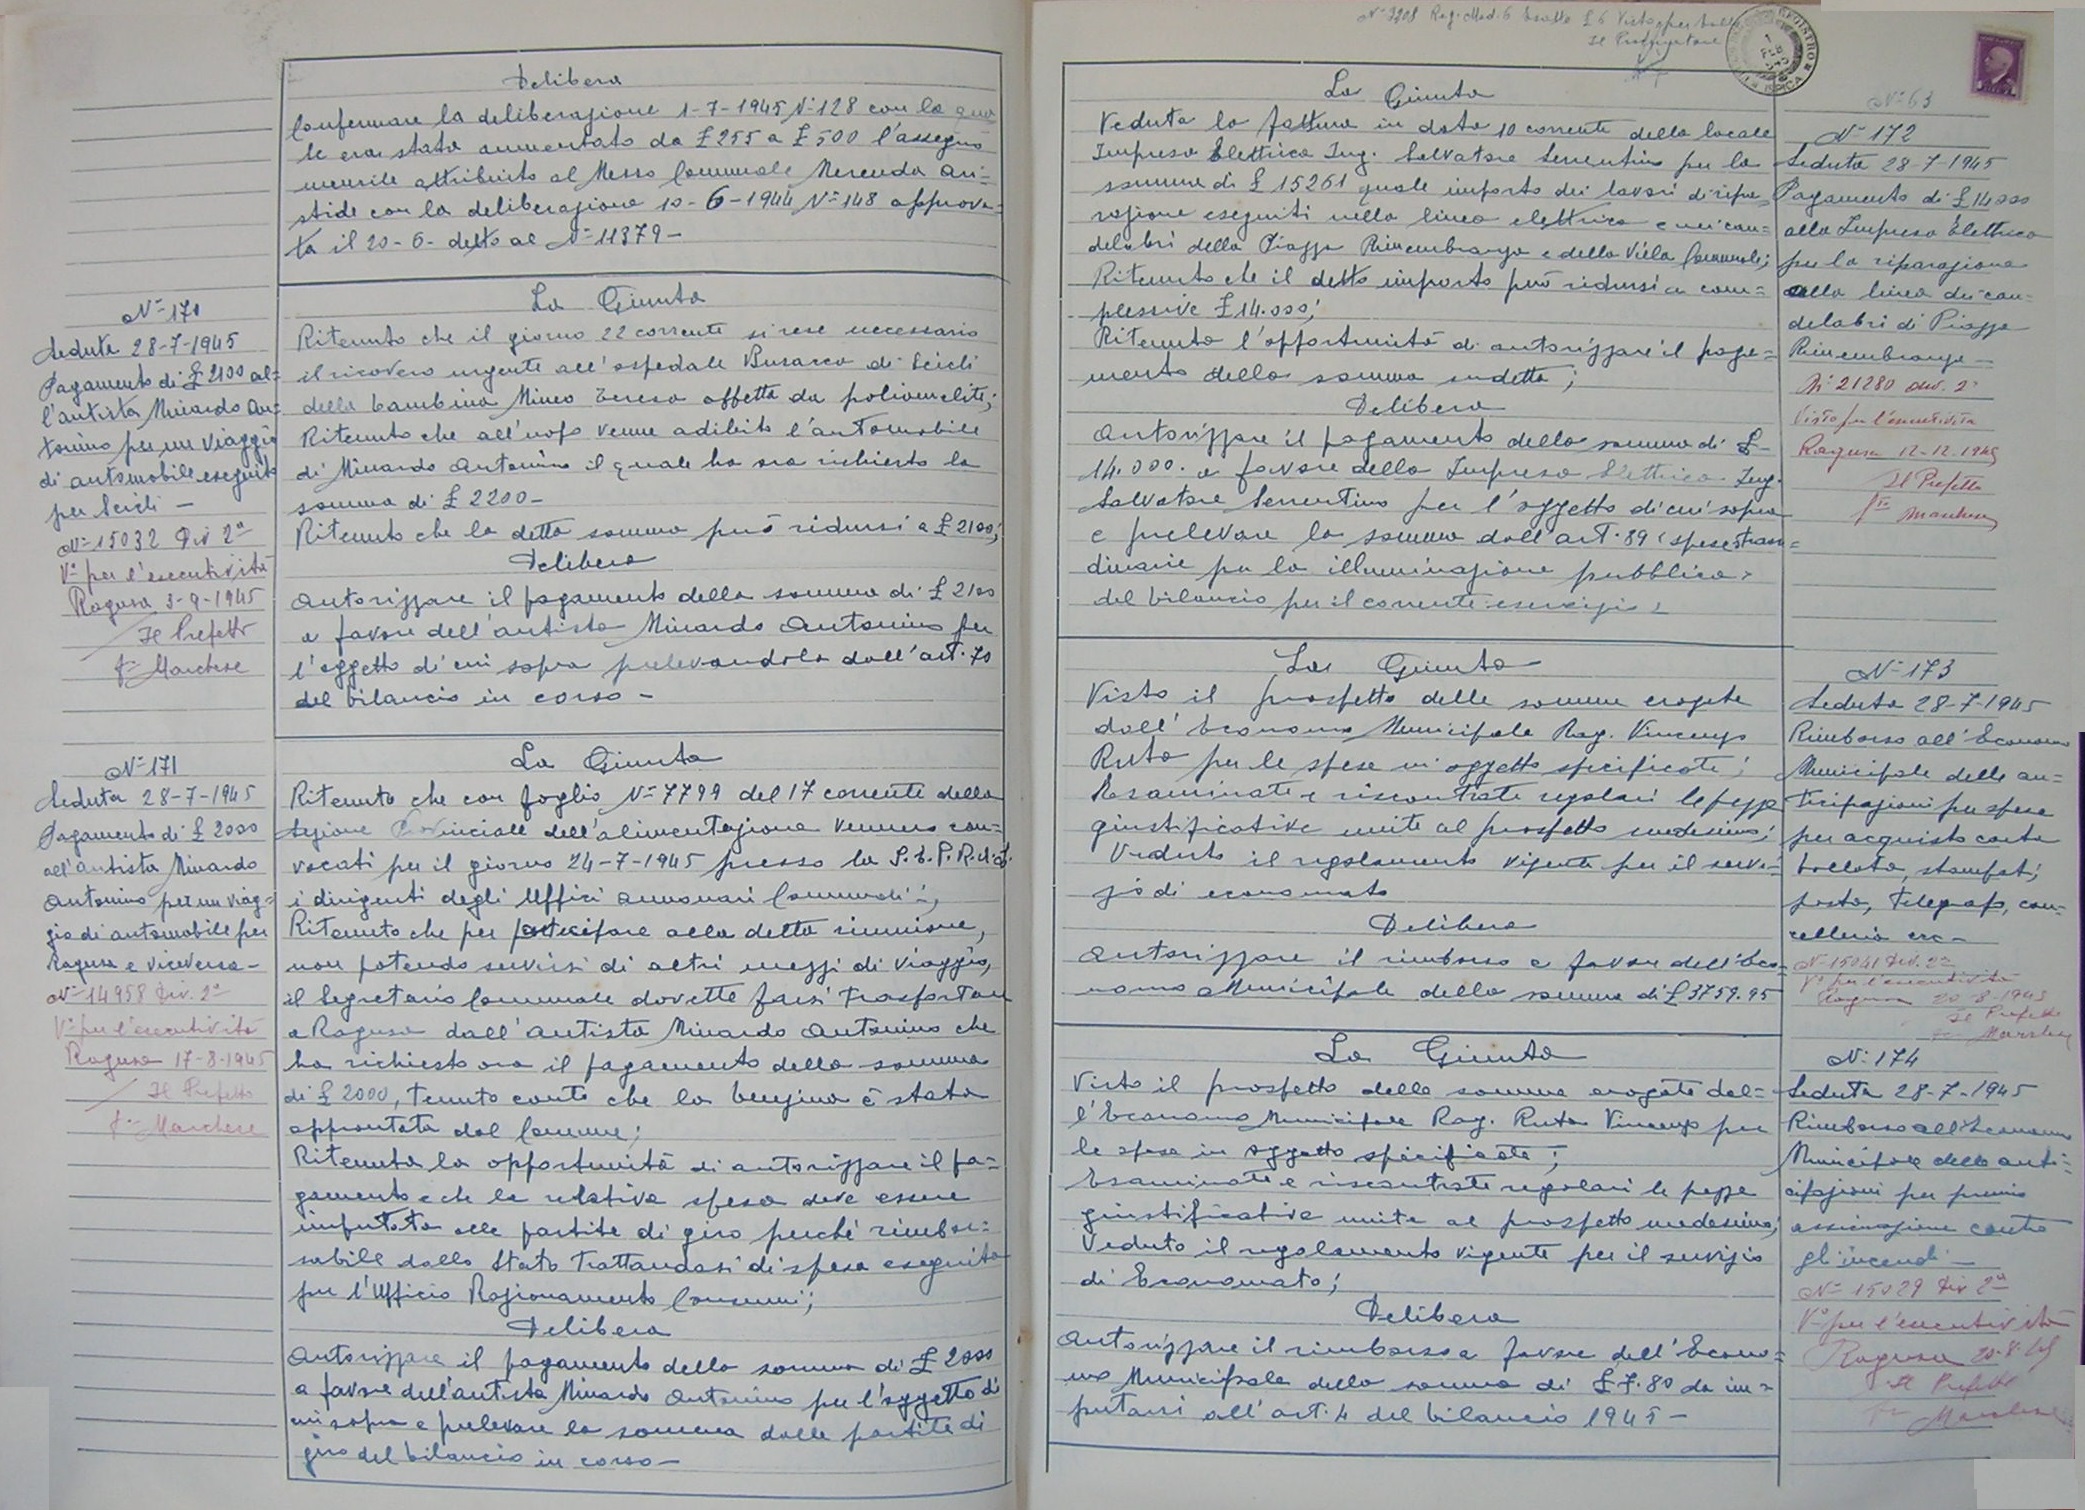 Delibera
Confermare la deliberazione 1-7-1945 N° 128 con la qua
le era stato aumentato da £ 255 a £ 500 l'assegno
mensile attribuito al Messo Comunale Merenda Ari=
stide con la deliberazione 10-6-1944 N° 148 approva-
ta il 20-6- detto al N° 11379-
N° 170
Seduta 28-7-1945
Pagamento di £ 2100 al=
l'autista Minardo An=
tonino per un viaggio
di automobile eseguito
per Scicli -
N° 15032 Div 2ª
V° per l'esecutività
Ragusa 3-9-1945
Il Prefetto
f° Marchese
La Giunta
Ritenuto che il giorno 22 corrente si rese necessario
il ricovero urgente all'ospedale Busacca di Scicli
della bambina Mineo Teresa affetta da poliomelite;
Ritenuto che all'uopo venne adibito l'automobile
di Minardo Antonino il quale ha ora richiesto la
somma di £ 2200-
Ritenuto che la detta somma può ridursi a £ 2100;
Delibera
Autorizzare il pagamento della somma di £ 2100
a favore dell'autista Minardo Antonino per
l'oggetto di cui sopra prelevandola dall'art. 70
del bilancio in corso -
N° 171
Seduta 28-7-1945
Pagamento di £ 2000
all'autista Minardo
Antonino per un viag=
gio di automobile per
Ragusa e viceversa-
N° 14958 Div. 2ª
V° per l'esecutività
Ragusa 17-8-1945
Il Prefetto
f° Marchese
La Giunta
Ritenuto che con foglio N° 7799 del 17 corrente della
Sezione Provinciale dell'alimentazione vennero con=
vocati per il giorno 24-7-1945 presso la
i dirigenti degli Uffici annonari Comunali;
Ritenuto che per partecipare alla detta riunione,
non potendo servirsi di altri mezzi di viaggio,
il Segretario Comunale dovette farsi trasportare
a Ragusa dall'autista Minardo Antonino che
ha richiesto ora il pagamento della somma
di £ 2000, tenuto conto che la benzina è stata
approntata dal Comune;
Ritenuta la opportunità di autorizzare il pa=
gamento e che la relativa spesa deve essere
imputata alle partite di giro perchè rimbor=
sabile dallo Stato trattandosi di spesa eseguita
per l'Ufficio Razionamento Consumi;
Delibera
Autorizzare il pagamento della somma di £ 2000
a favore dell'autista Minardo Antonino per l'oggetto di
cui sopra e prelevare la somma dalle partite di
giro del bilancio in corso-
N° 3208 Reg. Mod. 6 Esatto £ 6 Visto per bollo
Il Procuratore
REGISTRO
ISPICA
N° 63
La Giunta
Veduta la fattura in data 10 corrente della locale
Impresa Elettrica Ing. Salvatore Serrentino per la
somma di £ 15261 quale importo dei lavori di ripa=
razione eseguiti nella linea elettrica e nei can=
delabri della Piazza Rimembranza e della Villa Comunale;
Ritenuto che il detto importo può ridursi a com=
plessive £ 14.000;
Ritenuta l'opportunità di autorizzare il paga=
mento della somma sudetta;
Delibera
Autorizzare il pagamento della somma di £
14.000. a favore della Impresa Elettrica Ing.
Salvatore Serrentino per l'oggetto di cui sopra
e prelevare la somma dall'art. 89 (spese straor=
dinarie per la illuminazione pubblica)
del bilancio per il corrente esercizio;
N° 172
Seduta 28-7-1945
Pagamento di £ 14000
alla Impresa Elettrica
per la riparazione
alla linea dei can=
delabri di Piazza
Rimembranza -
N° 21280 div. 2ª
Visto per l'esecutività
Ragusa 12-12-1945
Il Prefetto
f° Marchese
La Giunta
Visto il prospetto delle somme erogate
dall'Economo Municipale Rag. Vincenzo
Ruta per le spese in oggetto specificate;
Esaminate e riscontrate regolari le pezze
giustificative unite al prospetto medesimo;
Veduto il regolamento vigente per il servi=
zio di economato
Delibera
Autorizzare il rimborso a favore dell'Eco=
nomo Municipale della somma di £ 3759.95
N° 173
Seduta 28-7-1945
Rimborso all'Economo
Municipale delle an=
ticipazioni per spese
per acquisto carta
bollata, stampati,
posta, telegrafo, can=
celleria ecc-
N° 15041 Div. 2ª
V° per l'esecutività
Ragusa 20-8-1945
Il Prefetto
f° Marchese
La Giunta
Visto il prospetto delle somme erogate dal=
l'Economo Municipale Rag. Ruta Vincenzo per
le spese in oggetto specificate;
Esaminate e riscontrate regolari le pezze
giustificative unite al prospetto medesimo;
Veduto il regolamento vigente per il servizio
di Economato;
Delibera
Autorizzare il rimborso a favore dell'Econo=
mo Municipale della somma di £ 7.80 da im=
putarsi all'art. 4 del bilancio 1945-
N° 174
Seduta 28-7-1945
Rimborso all'Economo
Municipale delle anti=
cipazioni per premio
assicurazione contro
gli incendi -
N° 15029 Div 2ª
V° per l'esecutività
Ragusa 20-8-45
Il Prefetto
f° Marchese